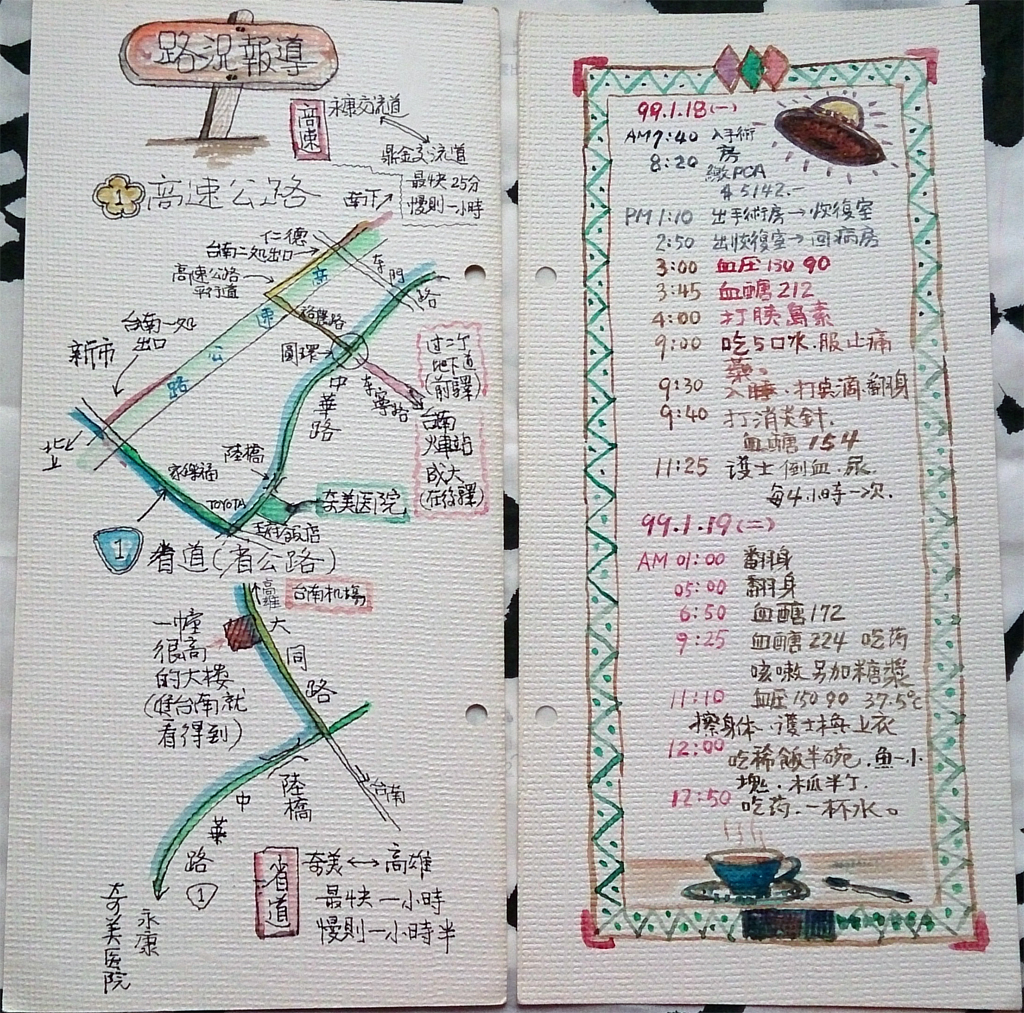 路況報導
高速
永康交流道
鼎金交流道
最快25分
慢則一小時
1
高速公路
南下
仁德
台南二処出口
高速公路
平行道
東門
路
高
東
公
路
裕農路
台南一処
出口
新市
圓環
過二个
地下道
(前驛)
東寧路
中
華
路
台南
火車站
成大
(在後驛)
北
上
家樂福
陸橋
TOYOTA
奇美医院
飯店
1
省道(省公路)
高雄
台南机場
一幢
很高
的大樓
(進台南就
看得到)
大
同
路
台南
陸
橋
中
華
路
1
省道
奇美↔高雄
最快一小時
慢則一小時半
永康
奇美医院
99.1.18(一)
AM7:40 入手術
房
8:20 繳PCA
$5142.-
PM1:10 出手術房→恢復室
2:50 出恢復室→回病房
3:00 血压130 90
3:45 血醣212
4:00 打胰島素
9:00 吃5口水.服止痛
藥。
9:30 入睡.打点滴.翻身
9:40 打消炎針.
血醣154
11:25 護士倒血.尿.
每4小時一次.
99.1.19(二)
AM 01:00 翻身
05:00 翻身
6:50 血醣172
9:25 血醣224 吃药
咳嗽另加糖漿
11:10 血压150 90 37.5℃
擦身体.護士換上衣
12:00
吃稀飯半碗.魚一小
塊.木瓜半丁.
12:50 吃药.一杯水。